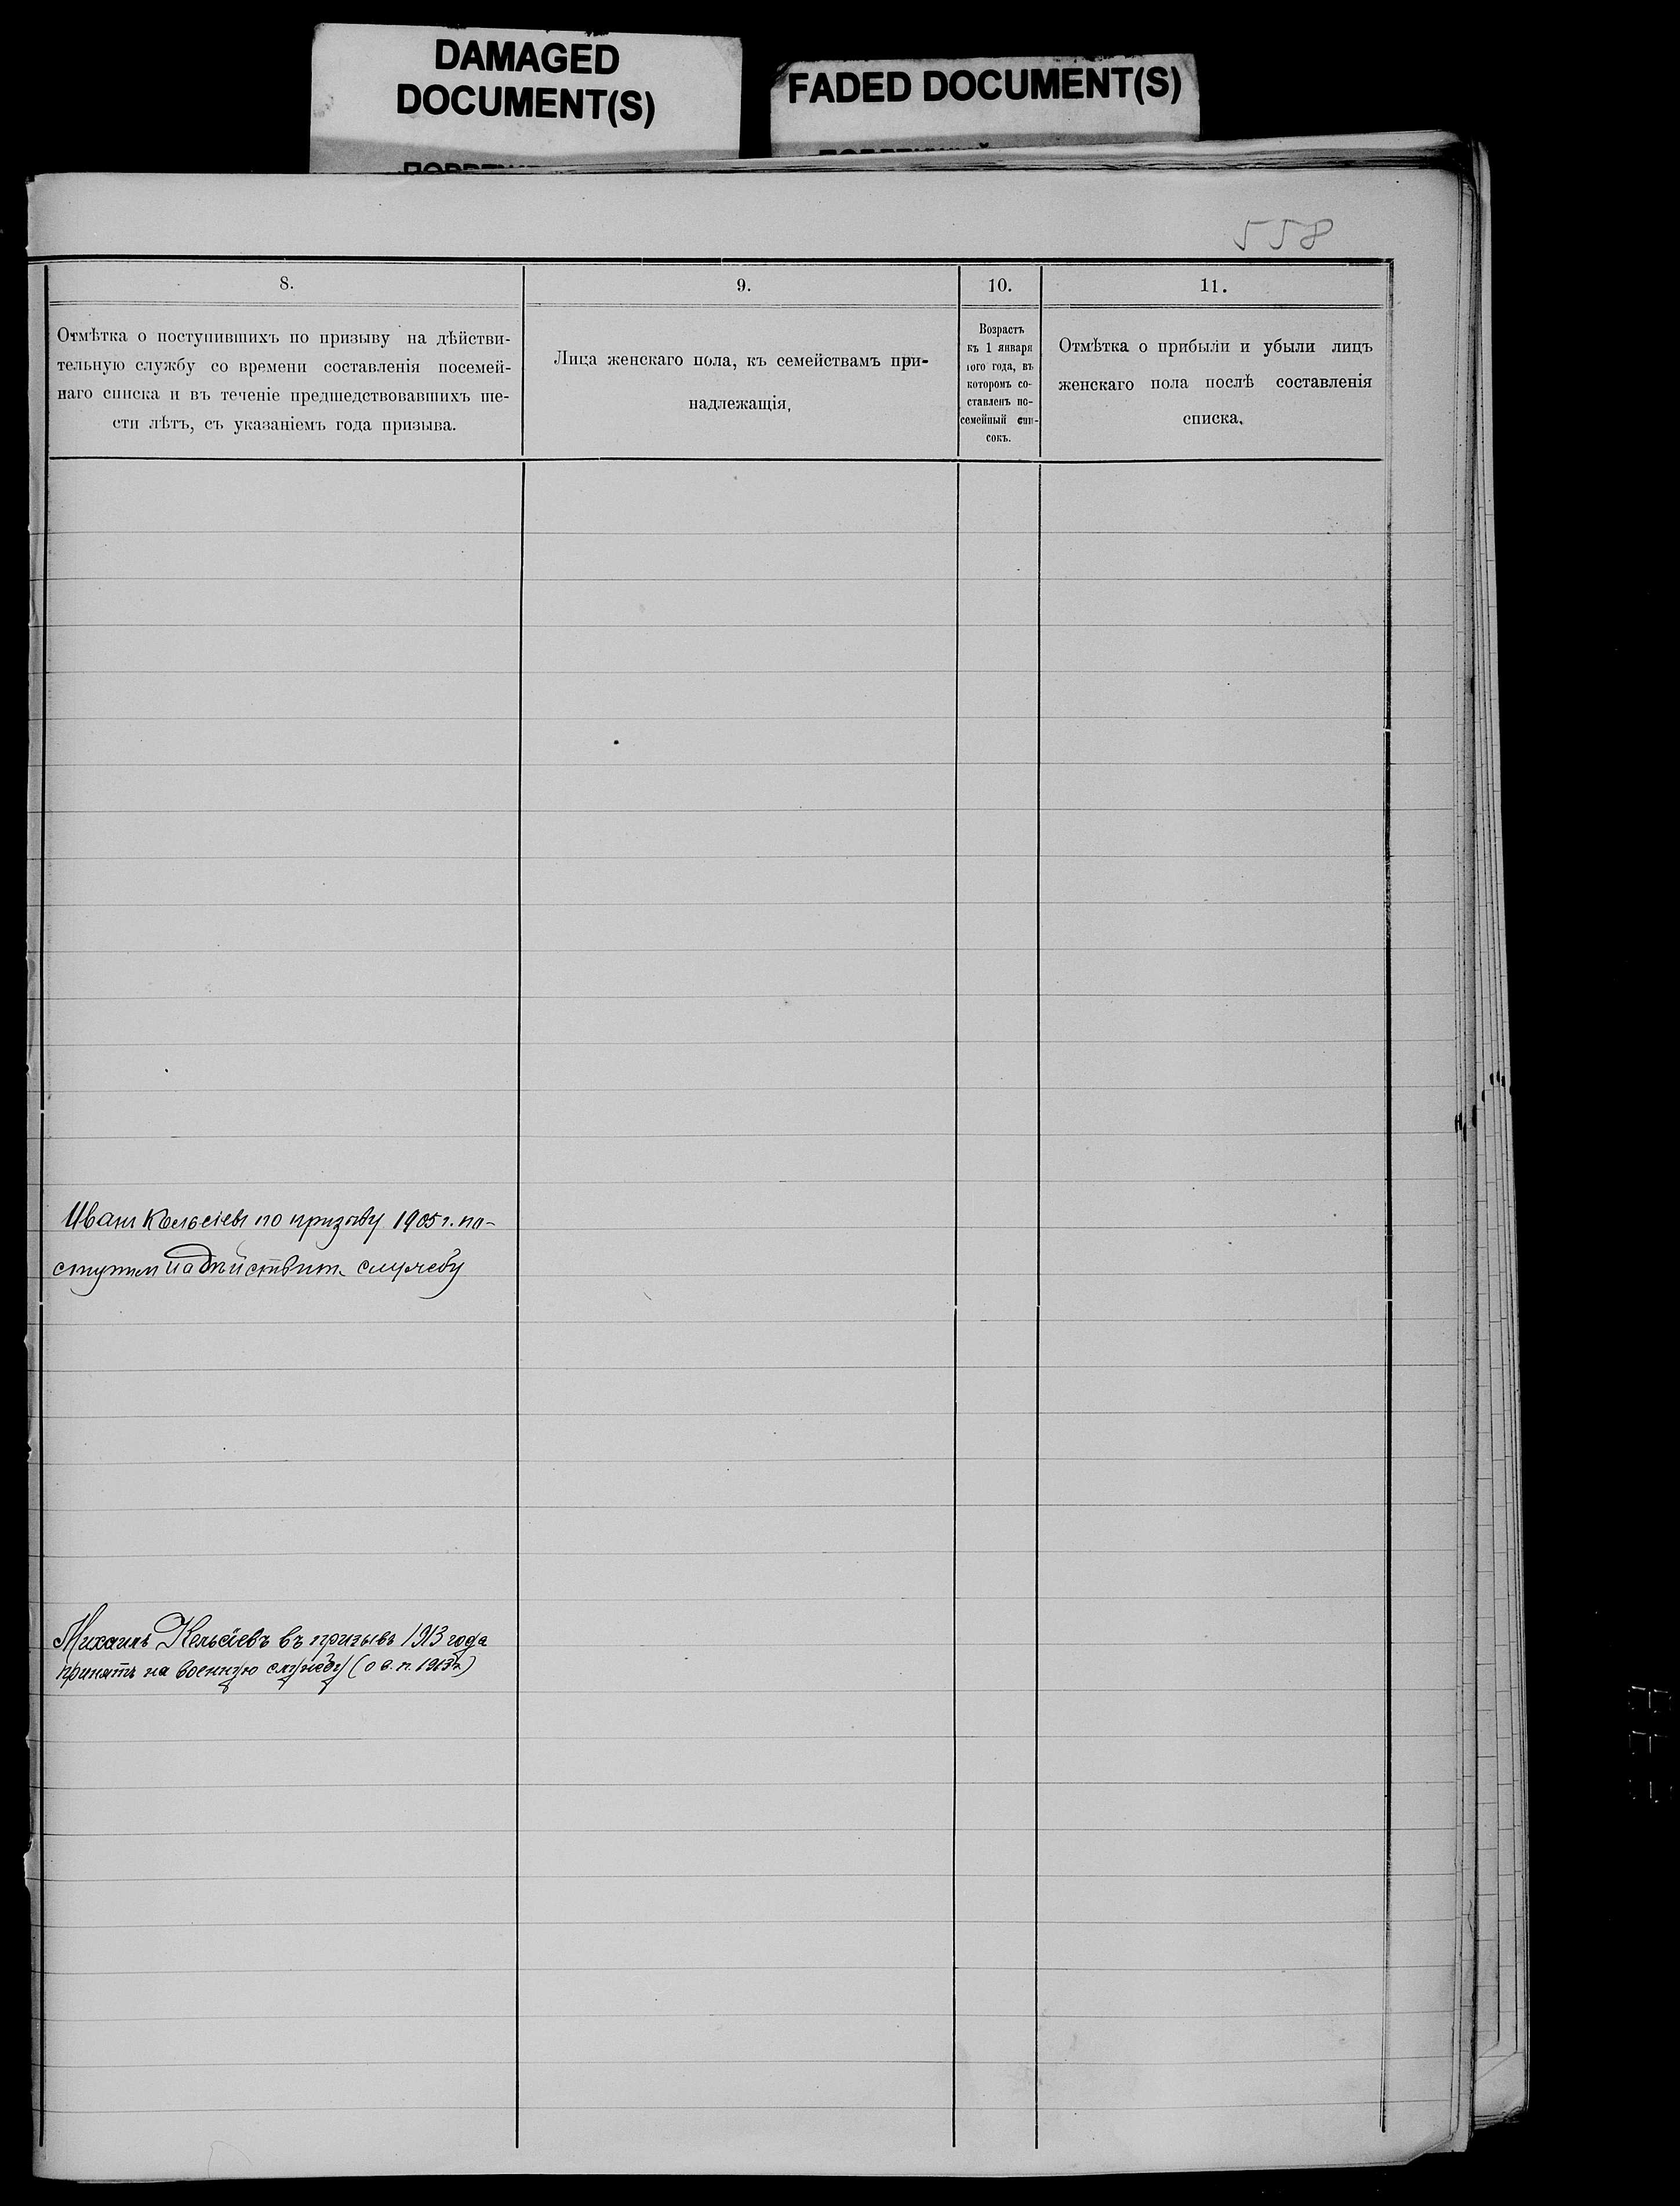 DAMAGED
DOCUMENT(S)
FADED DOCUMENT(S)
558
8.
9.
10.
11.
Отмѣтка о поступившихъ по призыву на дѣйстви-
тельную службу со времени составленія посемей-
наго списка и въ теченіе предшедствовавшихъ ше-
сти лѣтъ, съ указаніемъ года призыва.
Лица женскаго пола, къ семействамъ при-
надлежащія,
Возрастъ
къ 1 января
того года, въ
которомъ со-
ставленъ по-
семейный спи-
сокъ.
Отмѣтка о прибыли и убыли лицъ
женскаго пола послѣ составленія
списка.
Иванъ Кельсіевъ по призыву 1905 г. по-
ступил на дѣйствит. службу
Михаилъ Кельсіевъ въ призывъ 1913 года
принятъ на военную службу (о в. п. 1913 г.)